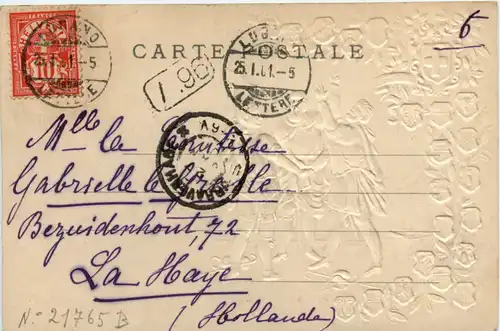 6
CARTE POSTALE
LUGANO
25.I.01.-5
LETTERE
10
LUGANO
25.I.01.-5
LETTERE
1.96
Mlle la Comtesse
Gabrielle de
Bezuidenhout, 72
La Haye
(Hollande)
N- 21765 B